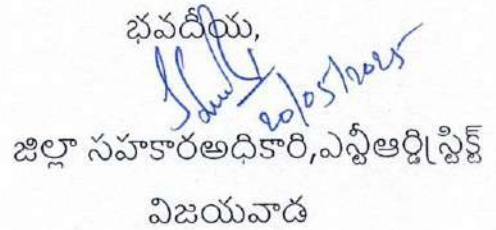 భవదీయ,
20/05/2025
జిల్లా సహకారఅధికారి,ఎన్టీఆర్డిస్ట్రిక్ట్
విజయవాడ